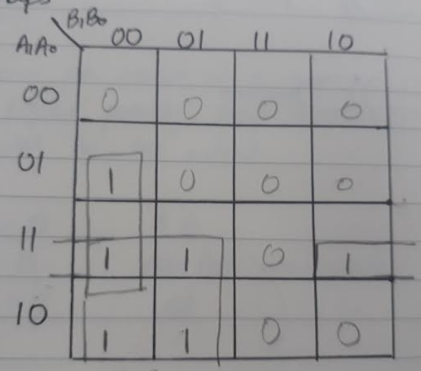 B₁B₀
A₁A₀ 00 01 11 10
00 0 0 0 0
01 1 0 0 0
11 1 1 0 1
10 1 1 0 0